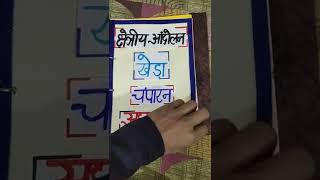 क्षेत्रीय-आंदोलन
खेड़ा
चंपारन